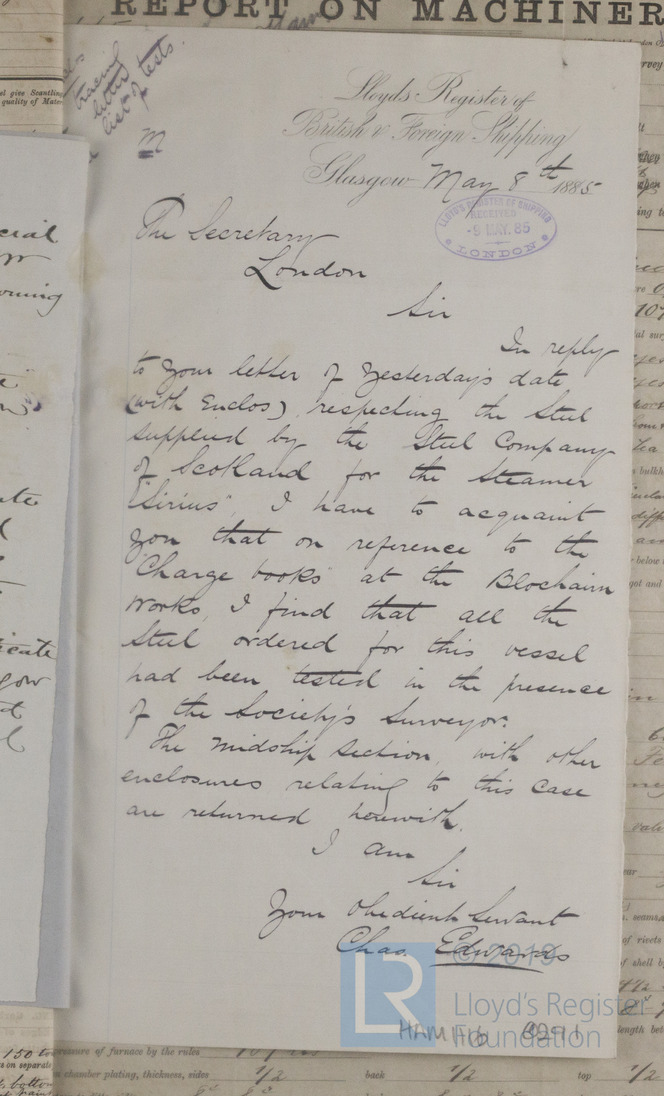 REPORT ON MACHINER
tracing
letter
list of tests.
M
Lloyds Register of
British & Foreign Shipping
Glasgow May 8th 1885
LLOYD'S REGISTER OF SHIPPING
RECEIVED
-9 MAY. 85
LONDON
The Secretary
London
Sir
In reply
to your letter of yesterday's date
(with Enclos), respecting the Steel
supplied by the Steel Company
of Scotland for the Steamer
"Sirius", I have to acquaint
you that on reference to the
Charge books at the Blochairn
Works, I find that all the
Steel ordered for this vessel
had been tested in the presence
of the Society's Surveyor.
The midship section, with other
enclosures relating to this case
are returned herewith.
I am
Sir
Your Obedient Servant
Chas. Edwards
© 2019
LR
Lloyd's Register
Foundation
HAM F16 8291
pressure of furnace by the rules
chamber plating, thickness, sides 1/2 back 1/2 top 1/2